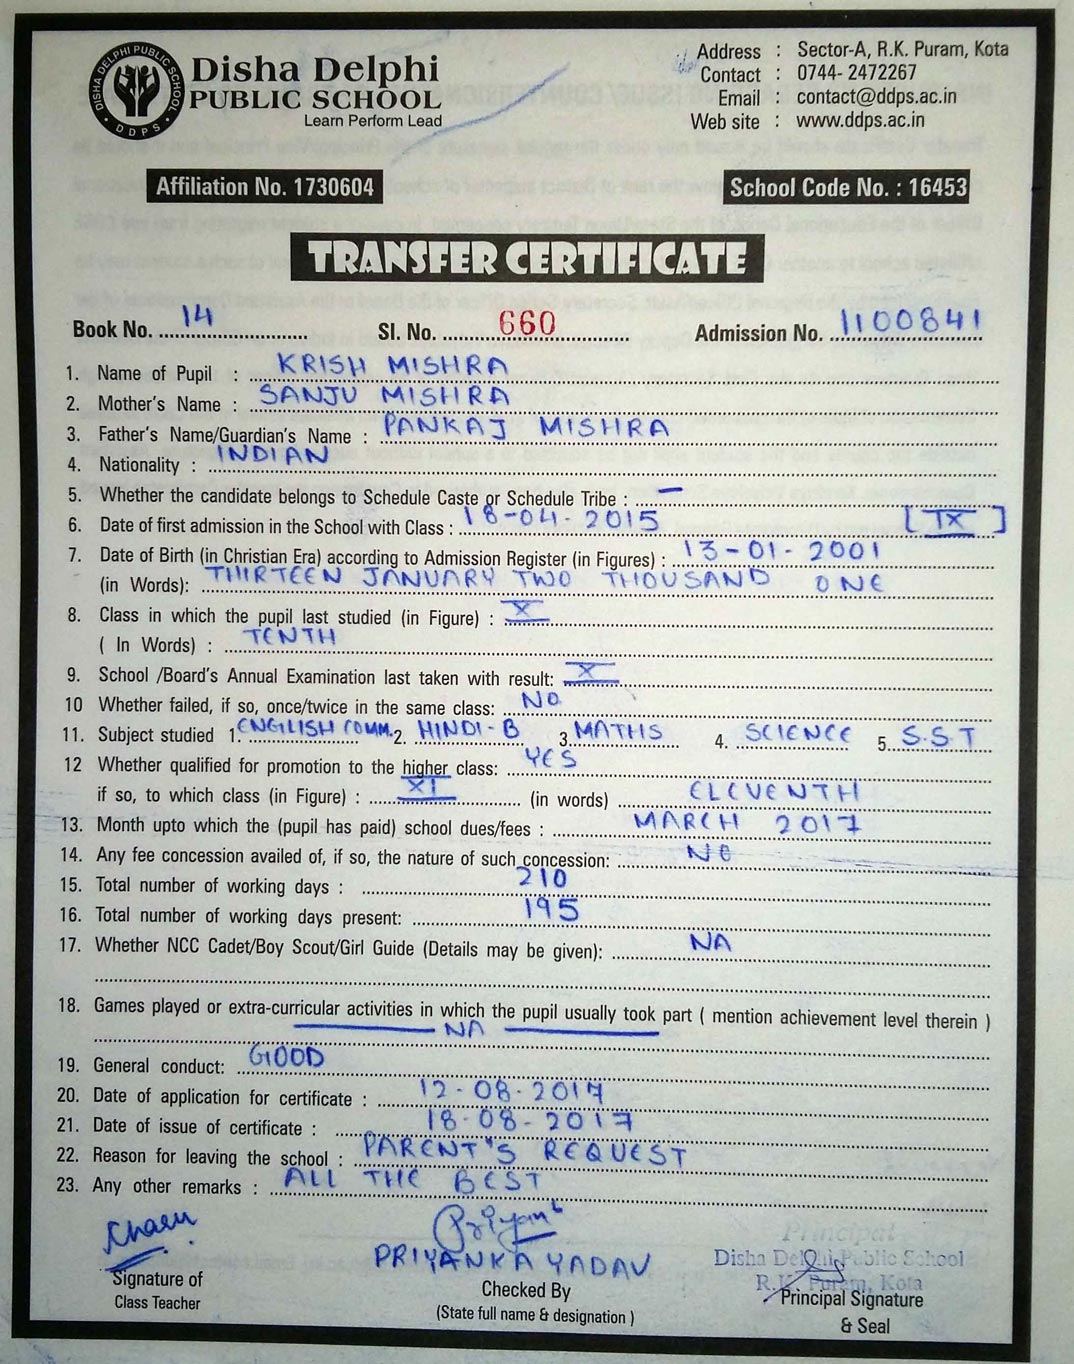 DISHA DELPHI PUBLIC SCHOOL
DDPS
Disha Delphi
PUBLIC SCHOOL
Learn Perform Lead
Address : Sector-A, R.K. Puram, Kota
Contact : 0744- 2472267
Email : contact@ddps.ac.in
Web site : www.ddps.ac.in
Affiliation No. 1730604 School Code No. : 16453
TRANSFER CERTIFICATE
Book No. 14 Sl. No. 660 Admission No. 1100841
1. Name of Pupil : KRISH MISHRA
2. Mother's Name : SANJU MISHRA
3. Father's Name/Guardian's Name : PANKAJ MISHRA
4. Nationality : INDIAN
5. Whether the candidate belongs to Schedule Caste or Schedule Tribe : —
6. Date of first admission in the School with Class : 18-04-2015 [IX]
7. Date of Birth (in Christian Era) according to Admission Register (in Figures) : 13-01-2001
(in Words): THIRTEEN JANUARY TWO THOUSAND ONE
8. Class in which the pupil last studied (in Figure) : X
( In Words) : TENTH
9. School /Board's Annual Examination last taken with result: X
10 Whether failed, if so, once/twice in the same class: NO
11. Subject studied 1. ENGLISH COMM. 2. HINDI-B 3. MATHS 4. SCIENCE 5. S.S.T
12 Whether qualified for promotion to the higher class: YES
if so, to which class (in Figure) : XI (in words) ELEVENTH
13. Month upto which the (pupil has paid) school dues/fees : MARCH 2017
14. Any fee concession availed of, if so, the nature of such concession: NO
15. Total number of working days : 210
16. Total number of working days present: 195
17. Whether NCC Cadet/Boy Scout/Girl Guide (Details may be given): NA
18. Games played or extra-curricular activities in which the pupil usually took part ( mention achievement level therein )
— NA —
19. General conduct: GOOD
20. Date of application for certificate : 12-08-2017
21. Date of issue of certificate : 18-08-2017
22. Reason for leaving the school : PARENT'S REQUEST
23. Any other remarks : ALL THE BEST
PRIYANKA YADAV
Principal
Disha Delhi Public School
R.K. Puram, Kota
Signature of
Class Teacher
Checked By
(State full name & designation )
Principal Signature
& Seal